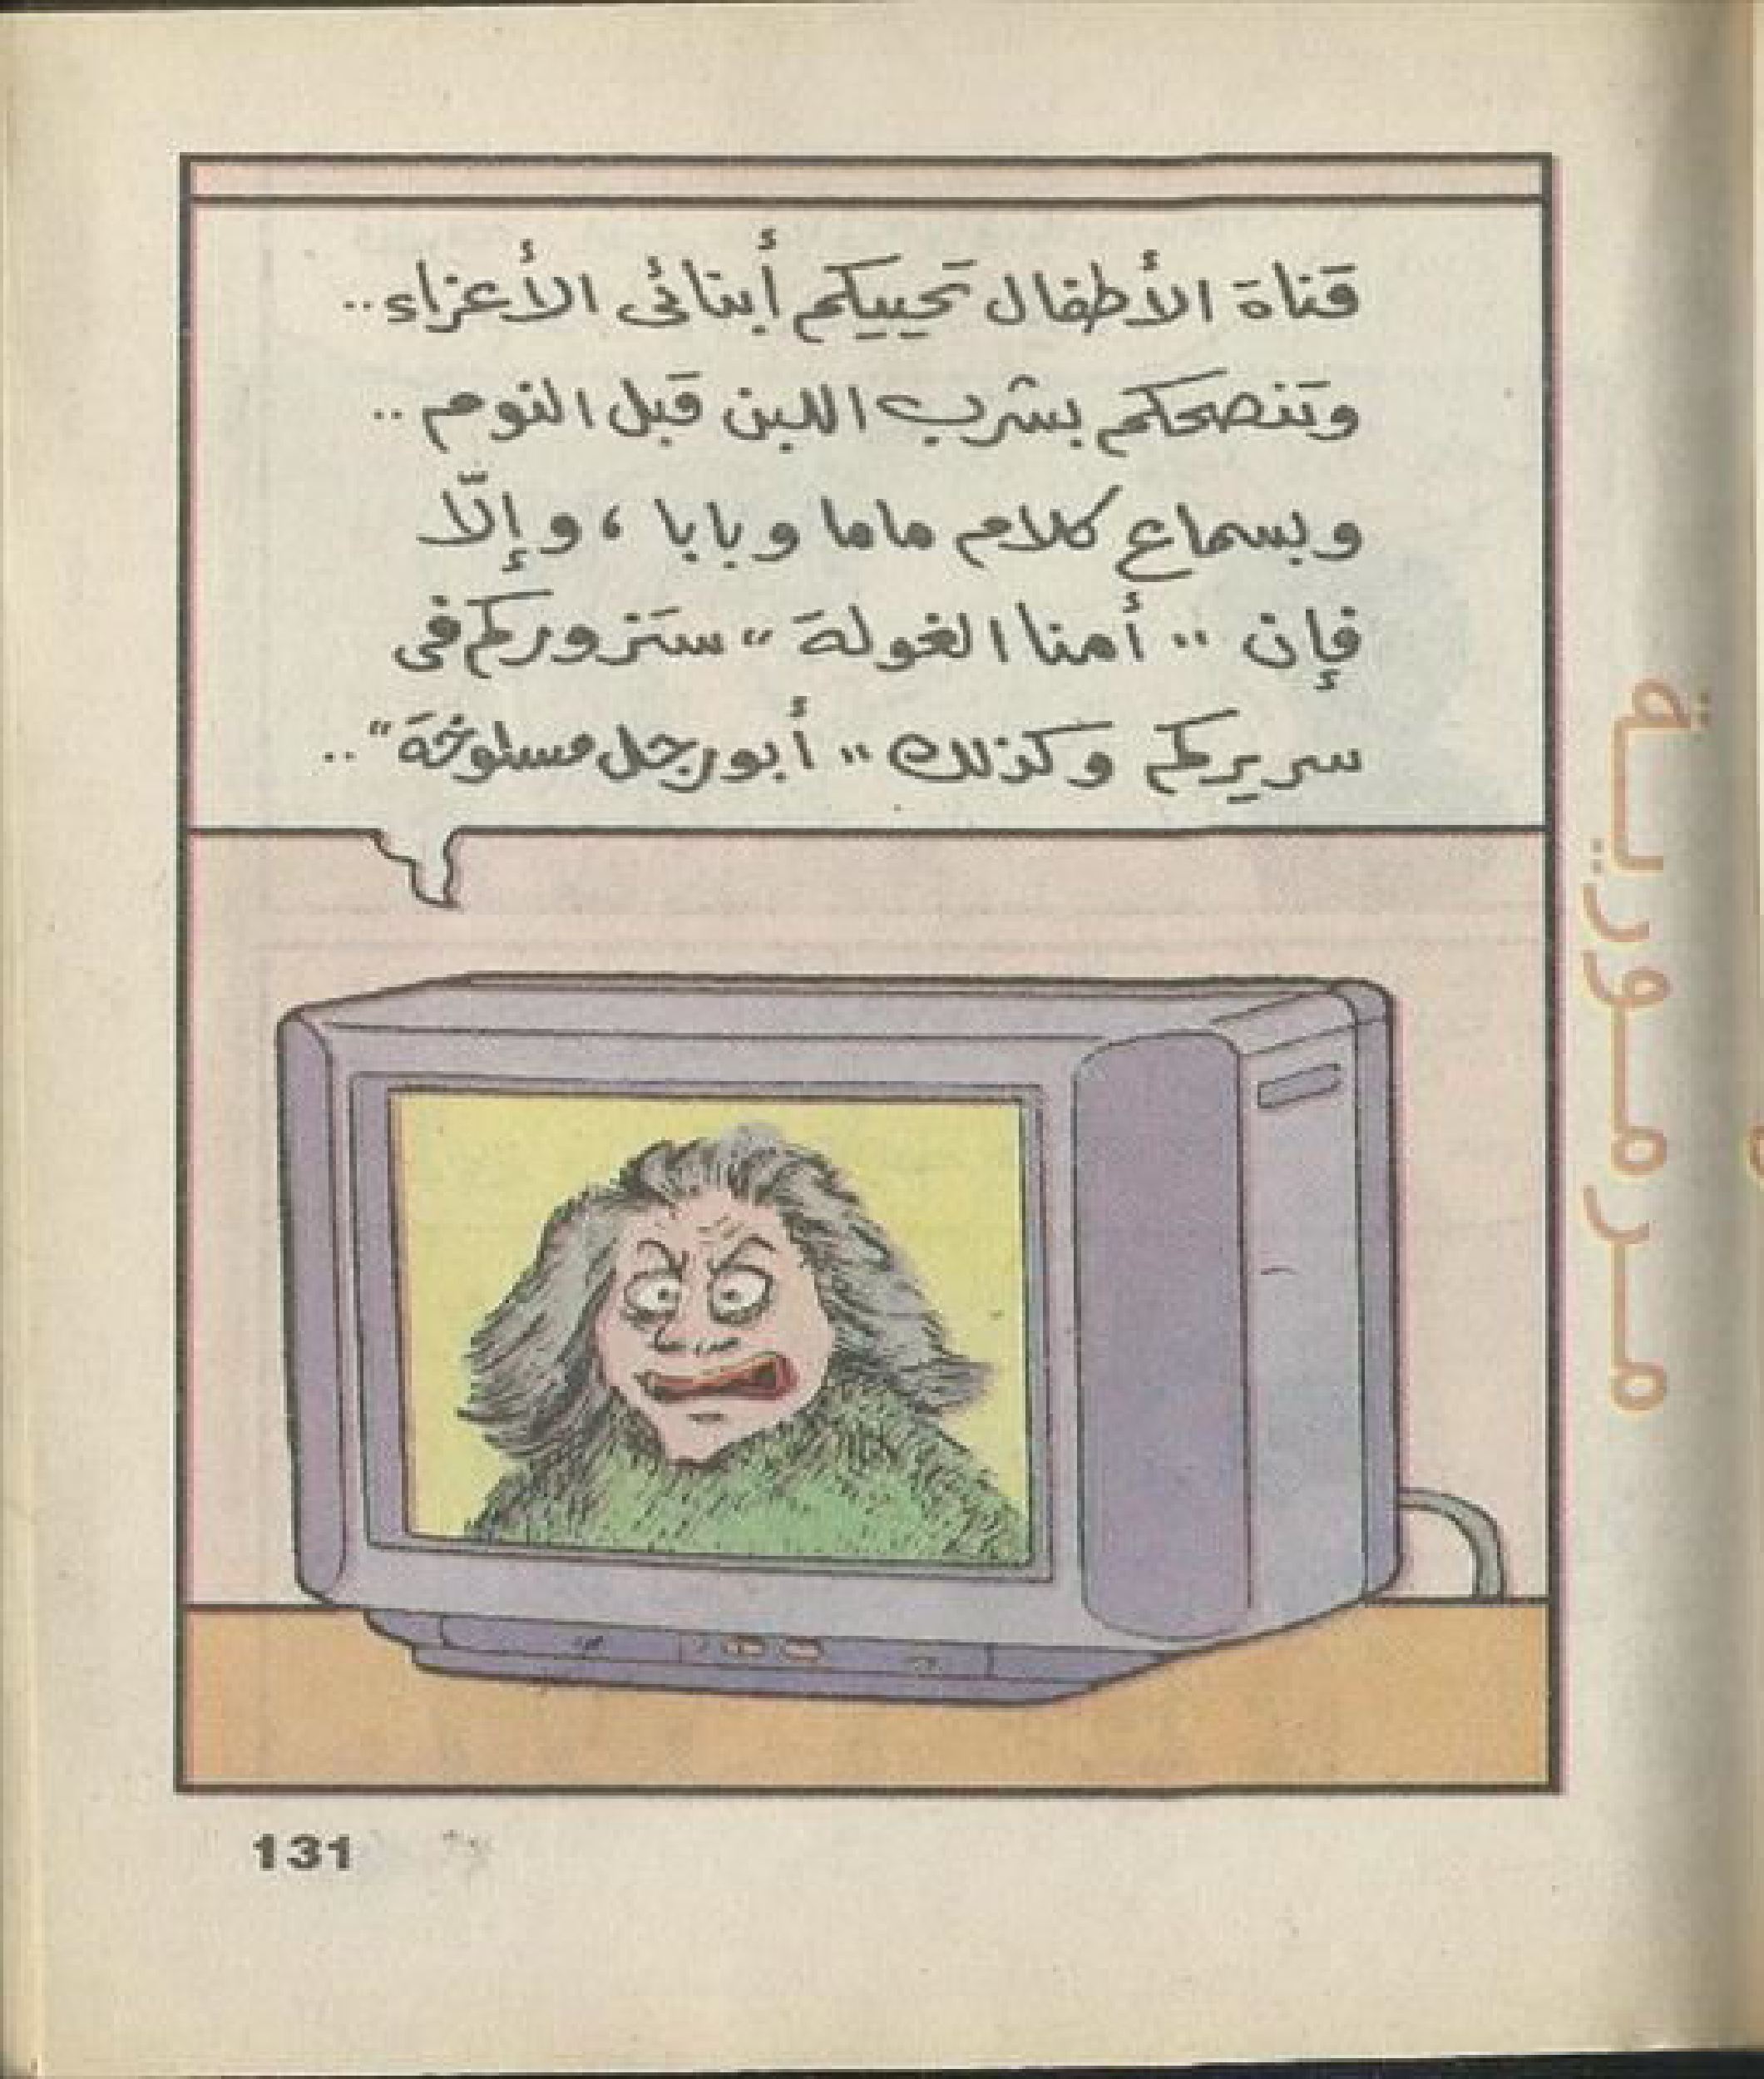 قناة الأطفال تحييكم أبنائى الأعزاء..
وتنصحكم بشرب اللبن قبل النوم..
وبسماع كلام ماما وبابا، وإلّا
فإن "أمنا الغولة" ستزوركم فى
سريركم وكذلك "أبو رجل مسلوخة"..
مرمورية
131